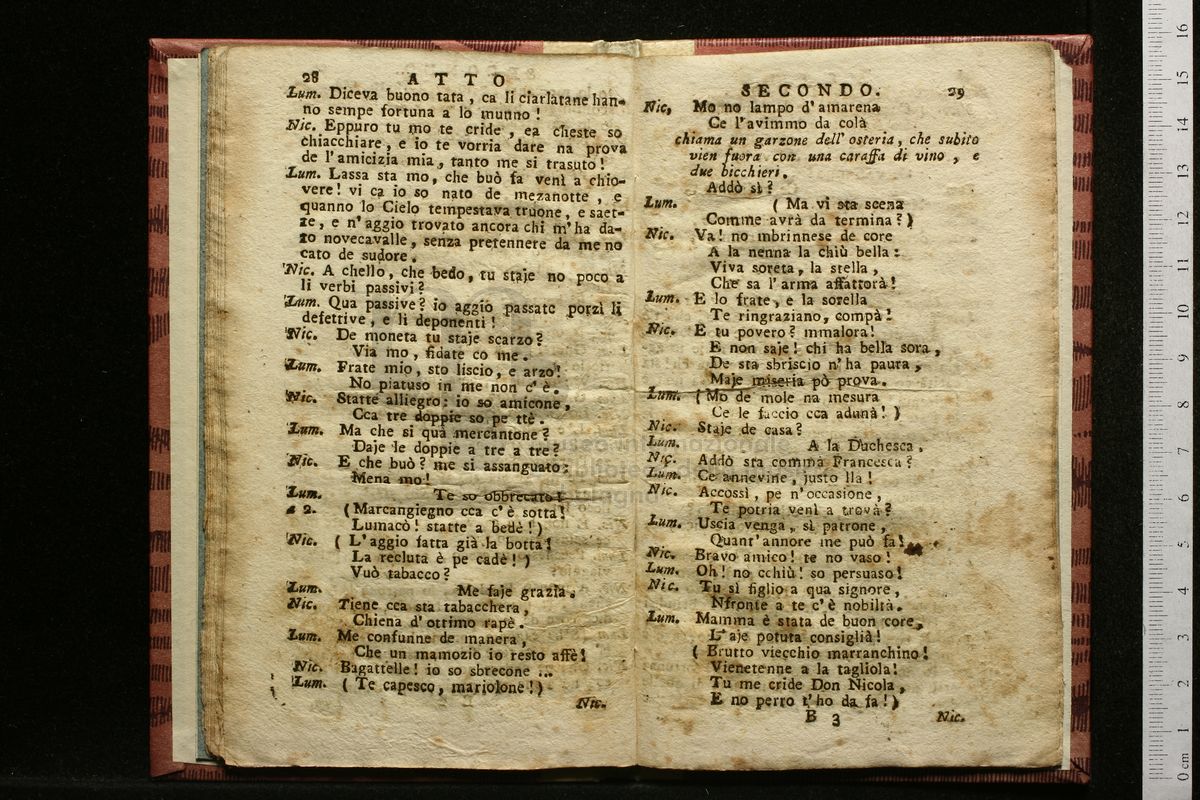 28 ATTO
Lum. Diceva buono tata, ca li ciarlatane han-
no sempe fortuna a lo munno!
Nic. Eppuro tu mo te cride, ea cheste so
chiacchiare, e io te vorria dare na prova
de l'amicizia mia, tanto me si trasuto!
Lum. Lassa sta mo, che buò fa venì a chio-
vere! vi ca io so nato de mezanotte, e
quanno lo Cielo tempestava truone, e saet-
te, e n'aggio trovato ancora chi m'ha da-
to novecavalle, senza pretennere da me no
cato de sudore.
Nic. A chello, che bedo, tu staje no poco a
li verbi passivi?
Lum. Qua passive? io aggio passate porzì li
defettive, e li deponenti!
Nic. De moneta tu staje scarzo?
Via mo, fidate co me.
Lum. Frate mio, sto liscio, e arzo!
No piatuso in me non c'è.
Nic. Statte alliegro: io so amicone,
Cca tre doppie so pe ttè.
Lum. Ma che si quà mercantone?
Daje le doppie a tre a tre?
Nic. E che buò? me si assanguato:
Mena mo!
Lum. Te so obbrecato!
a 2. (Marcangiegno cca c'è sotta!
Lumacò! statte a bedè!)
Nic. (L'aggio fatta già la botta!
La recluta è pe cadè!)
Vuò tabacco?
Lum. Me faje grazia.
Nic. Tiene cca sta tabacchera,
Chiena d'ottimo rapè.
Lum. Me confunne de manera,
Che un mamozio io resto affè!
Nic. Bagattelle! io so sbrecone ...
Lum. (Te capesco, mariolone!)
Nic.
SECONDO. 29
Nic, Mo no lampo d'amarena
Ce l'avimmo da colà
chiama un garzone dell'osteria, che subito
vien fuora con una caraffa di vino, e
due bicchieri.
Addò sì?
Lum. (Ma vi sta scena
Comme avrà da termina?)
Nic. Va! no mbrinnese de core
A la nenna la chiù bella:
Viva soreta, la stella,
Che sa l'arma affattorà!
Lum. E lo frate, e la sorella
Te ringraziano, compà!
Nic. E tu povero? mmalora!
E non saje! chi ha bella sora,
De sta sbriscio n'ha paura,
Maje miseria pò prova.
Lum. (Mo de mole na mesura
Ce le faccio cca adunà!)
Nic. Staje de casa?
Lum. A la Duchesca,
Nic. Addò sta commà Francesca?
Lum. Ce annevine, justo lla!
Nic. Accossì, pe n'occasione,
Te potria venì a trovà?
Lum. Uscia venga, sì patrone,
Quant'annore me può fa!
Nic. Bravo amico! te no vaso!
Lum. Oh! no cchiù! so persuaso!
Nic. Tu sì figlio a qua signore,
Nfronte a te c'è nobiltà.
Lum. Mamma è stata de buon core,
L'aje potuta consiglià!
(Brutto viecchio marranchino!
Vienetenne a la tagliola!
Tu me cride Don Nicola,
E no perro t'ho da fa!)
B 3 Nic.